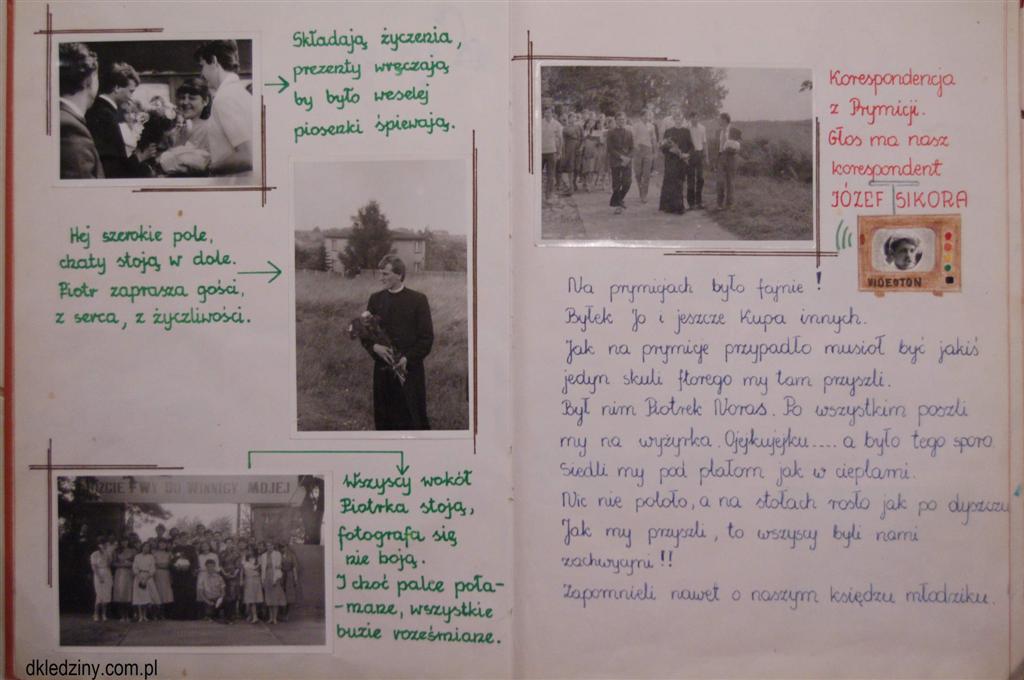 Składają życzenia,
prezenty wręczają
by było weselej
piosenki śpiewają.
Hej szerokie pole,
chaty stoją w dole.
Piotr zaprasza gości,
z serca, z życzliwości.
WY DO WINNICY MOJEJ
Wszyscy wokół
Piotrka stoją,
fotografa się
nie boją.
I choć palce poła-
-mane, wszystkie
buzie roześmiane.
dkledziny.com.pl
Korespondencja
z Prymicji.
Głos ma nasz
korespondent
JÓZEF SIKORA
VIDEOTON
Na prymicjach było fajnie!
Byłek Jo i jeszcze Kupa innych.
Jak na prymicje przypadło musioł być jakiś
jedyn skuli ftorego my tam przyszli.
Był nim Piotrek Noras. Po wszystkim poszli
my na wyżyrka. Ojejkujejku.... a było tego sporo.
Siedli my pod płatom jak w cieplami.
Nic nie pololo, a na stołach rosło jak po dyszczu
Jak my przyszli, to wszyscy byli nami
zachwycyni!!
Zapomnieli nawet o naszym księdzu młodziku.